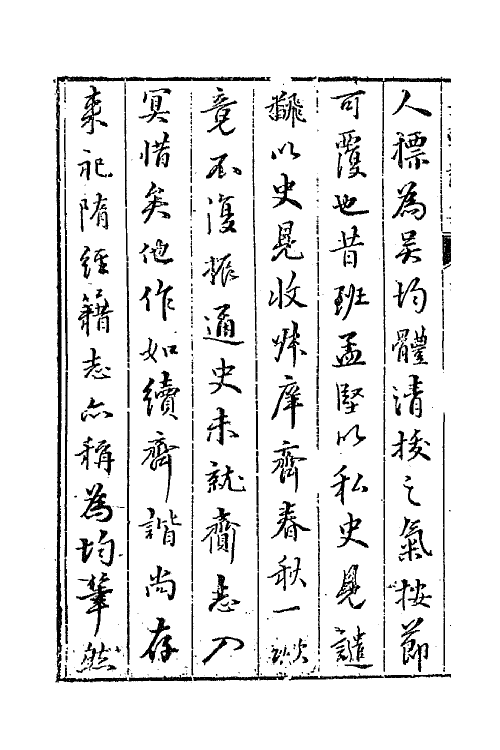 人標為吳均體清拔之氣按節
可覆也昔班孟堅以私史見譴
飜以史見收叔庠齊春秋一燬
竟不復振通史未就齎志入
冥惜矣他作如續齊諧尚存
來祀隋經籍志亦稱為均筆然